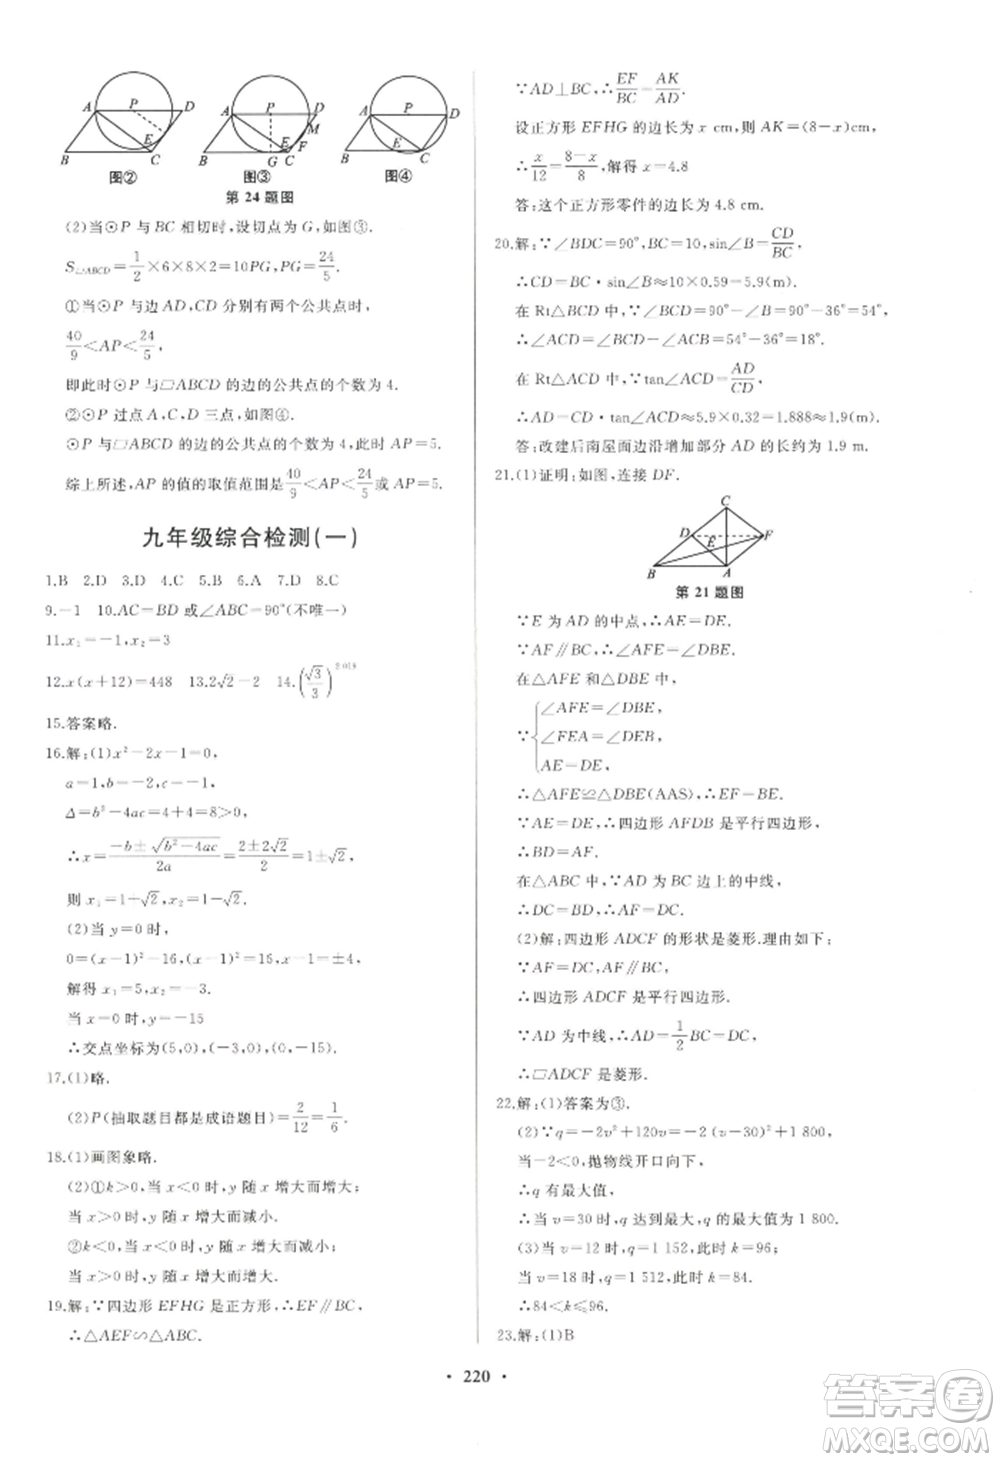 A P D E B C
图②
A P D M E F B G C
图③
A P D B C
图④
第 24 题图
(2)当⊙P 与 BC 相切时,设切点为 G,如图③.
S▱ABCD=1/2×6×8×2=10PG,PG=24/5.
①当⊙P 与边 AD,CD 分别有两个公共点时,
40/9<AP<24/5,
即此时⊙P 与▱ABCD 的边的公共点的个数为 4.
②⊙P 过点 A,C,D 三点,如图④.
⊙P 与▱ABCD 的边的公共点的个数为 4,此时 AP=5.
综上所述,AP 的值的取值范围是 40/9<AP<24/5 或 AP=5.
九年级综合检测(一)
1.B 2.D 3.D 4.C 5.B 6.A 7.D 8.C
9.-1 10.AC=BD 或∠ABC=90°(不唯一)
11.x₁=-1,x₂=3
12.x(x+12)=448 13.2√2-2 14.(√3/3)
15.答案略.
16.解:(1)x²-2x-1=0,
a=1,b=-2,c=-1,
Δ=b²-4ac=4+4=8>0,
∴x=(-b±√(b²-4ac))/2a=(2±2√2)/2=1±√2,
则 x₁=1+√2,x₂=1-√2.
(2)当 y=0 时,
0=(x-1)²-16,(x-1)²=16,x-1=±4,
解得 x₁=5,x₂=-3.
当 x=0 时,y=-15
∴交点坐标为(5,0),(-3,0),(0,-15).
17.(1)略.
(2)P(抽取题目都是成语题目)=2/12=1/6.
18.(1)画图象略.
(2)①k>0 时,当 x<0 时,y 随 x 增大而增大;
当 x>0 时,y 随 x 增大而减小.
②k<0 时,当 x<0 时,y 随 x 增大而减小;
当 x>0 时,y 随 x 增大而增大.
19.解:∵四边形 EFHG 是正方形,∴EF∥BC,
∴△AEF∽△ABC.
∵AD⊥BC,∴EF/BC=AK/AD.
设正方形 EFHG 的边长为 x cm,则 AK=(8-x)cm
∴x/12=(8-x)/8,解得 x=4.8
答:这个正方形零件的边长为 4.8 cm.
20.解:∵∠BDC=90°,BC=10,sin∠B=CD/BC
∴CD=BC·sin∠B≈10×0.59=5.9(m).
在 Rt△BCD 中,∵∠BCD=90°-∠B=90°-36°=54°,
∴∠ACD=∠BCD-∠ACB=54°-36°=18°.
在 Rt△ACD 中,∵tan∠ACD=AD/CD,
∴AD=CD·tan∠ACD≈5.9×0.32=1.888≈1.9(m).
答:改建后南屋面边沿增加部分 AD 的长约为 1.9 m.
21.(1)证明:如图,连接 DF.
C D E F B A
第 21 题图
∵E 为 AD 的中点,∴AE=DE.
∵AF∥BC,∴∠AFE=∠DBE.
在△AFE 和△DBE 中,
∠AFE=∠DBE,
∵{∠FEA=∠DEB,
AE=DE,
∴△AFE≌△DBE(AAS),∴EF=BE.
∵AE=DE,∴四边形 AFDB 是平行四边形,
∴BD=AF.
在△ABC 中,∵AD 为 BC 边上的中线,
∴DC=BD,∴AF=DC.
(2)解:四边形 ADCF 的形状是菱形.理由如下:
∵AF=DC,AF∥BC.
∴四边形 ADCF 是平行四边形.
∵AD 为中线,∴AD=1/2BC=DC.
∴▱ADCF 是菱形.
22.解:(1)答案为③.
(2)∵q=-2v²+120v=-2(v-30)²+1 800,
当-2<0,抛物线开口向下,
∴q 有最大值,
∴当 v=30 时,q 达到最大,q 的最大值为 1 800.
(3)当 v=12 时,q=1 152,此时 k=96;
当 v=18 时,q=1 512,此时 k=84.
∴84<k≤96.
23.解:(1)B
· 220 ·
答案圈
MXQE.COM